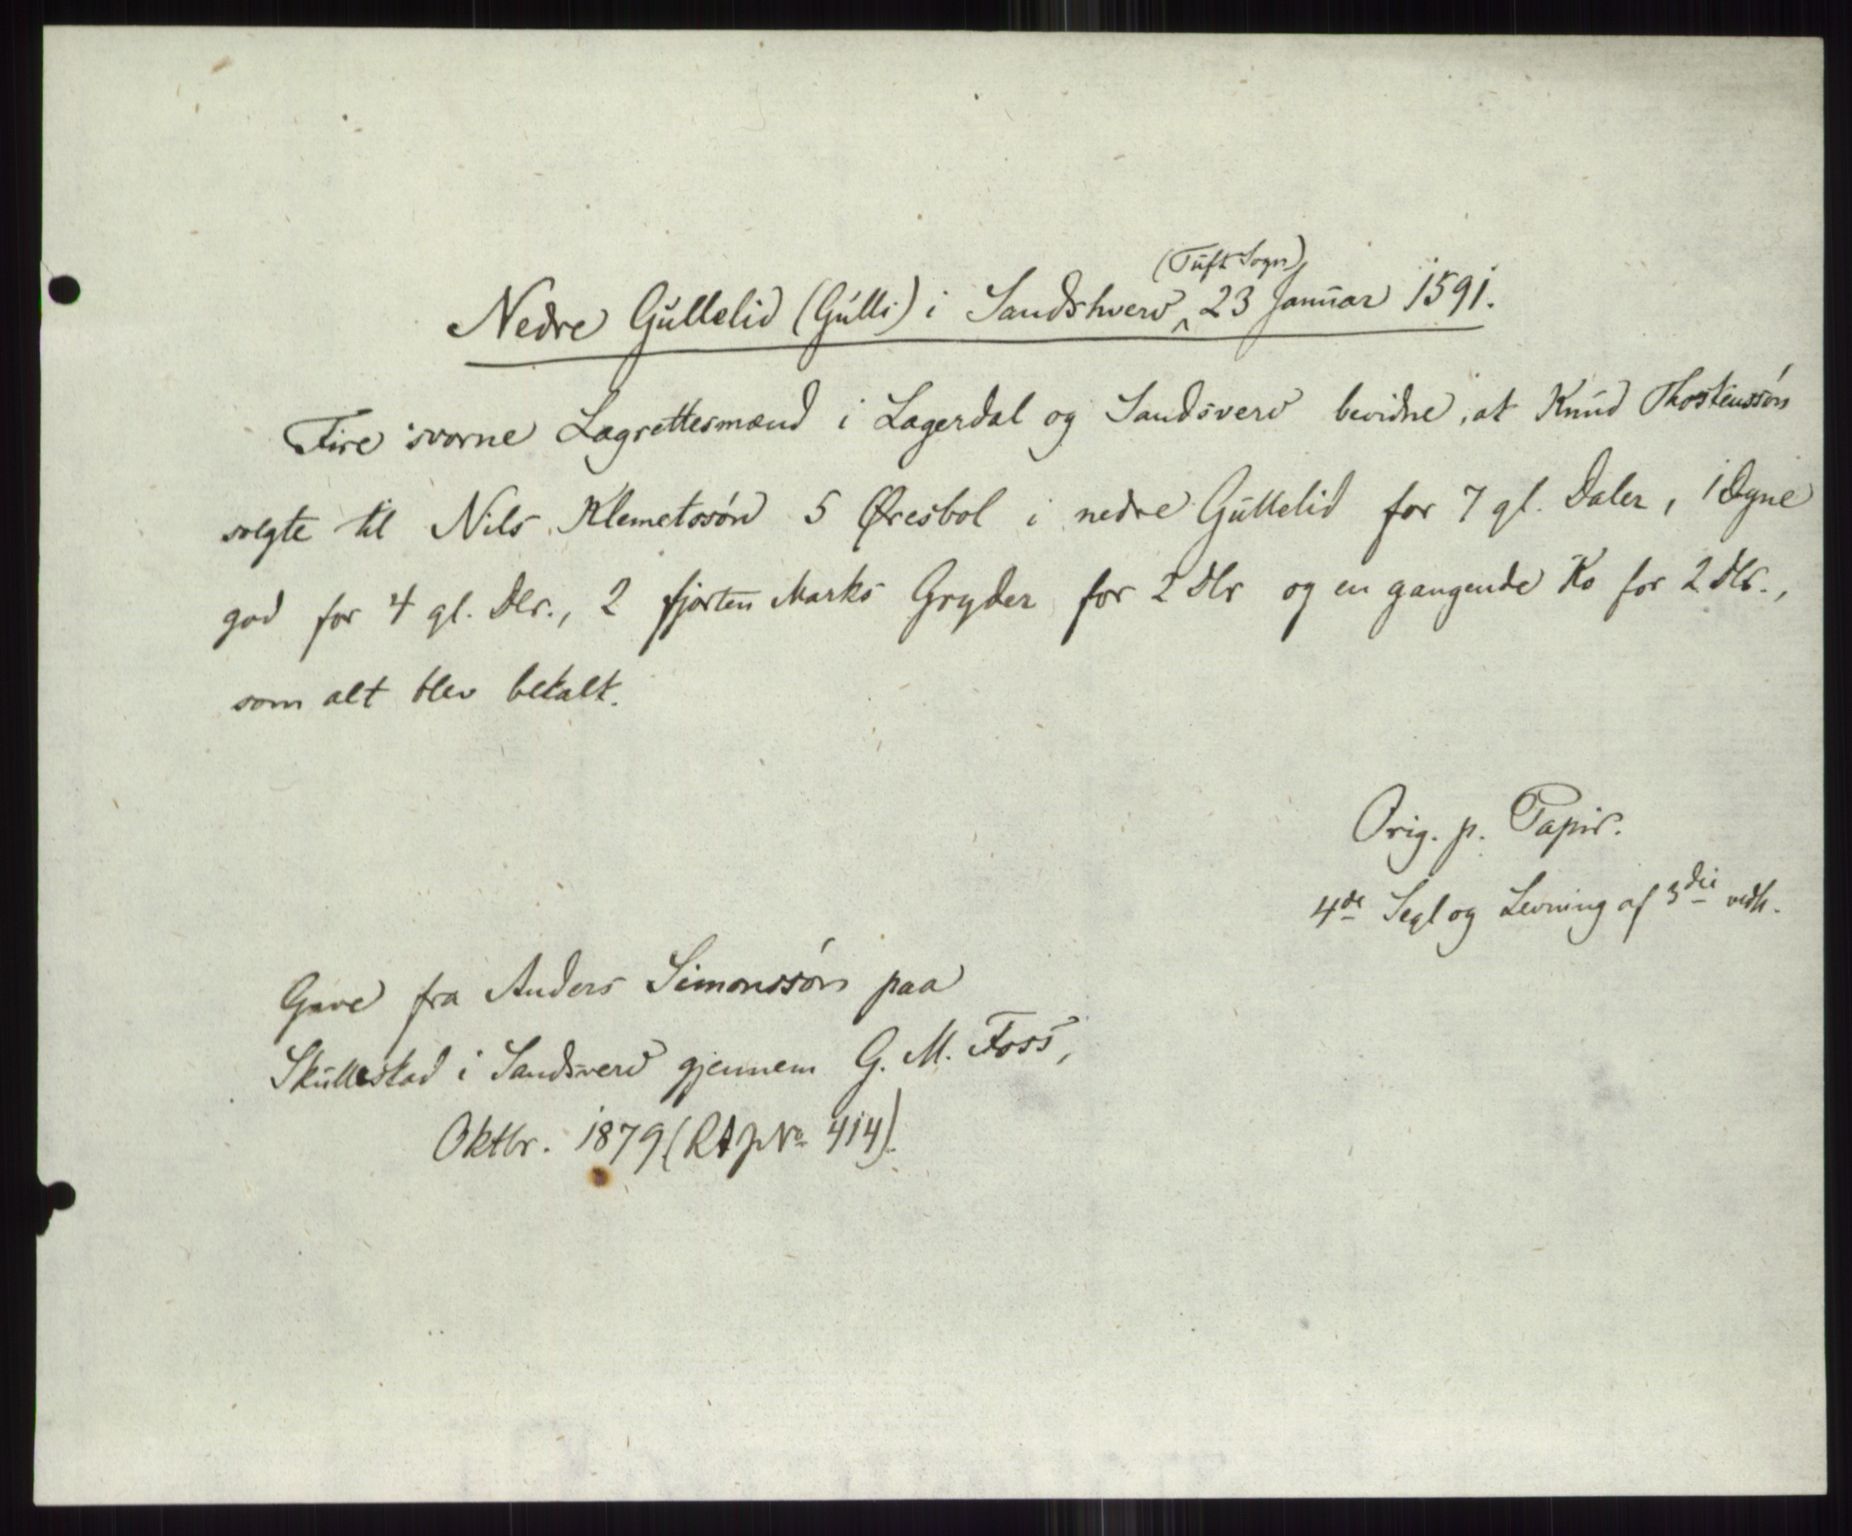 (Tuft Sogn)
Nedre Gullelid (Gulli) i Sandshverv 23 Januar 1591.
Fire svorne Lagrettesmænd i Lagerdal og Sandsverv bevidne, at Knud Thostenssøn
solgte til Nils Klemetssøn 5 Øresbol i nedre Gullelid for 7 gl. Daler, 1 Dyne
god for 4 gl. Dlr., 2 fjorten Marks Gryder for 2 Dlr og en gangende Ko for 2 Dlr.,
som alt blev betalt.
Orig. p. Papir.
4de Segl og Levning af 3die vedh.
Gave fra Anders Simonssøn paa
Skullestad i Sandsverv gjennem G. M. Foss,
Oktbr. 1879 (RAp No 414).